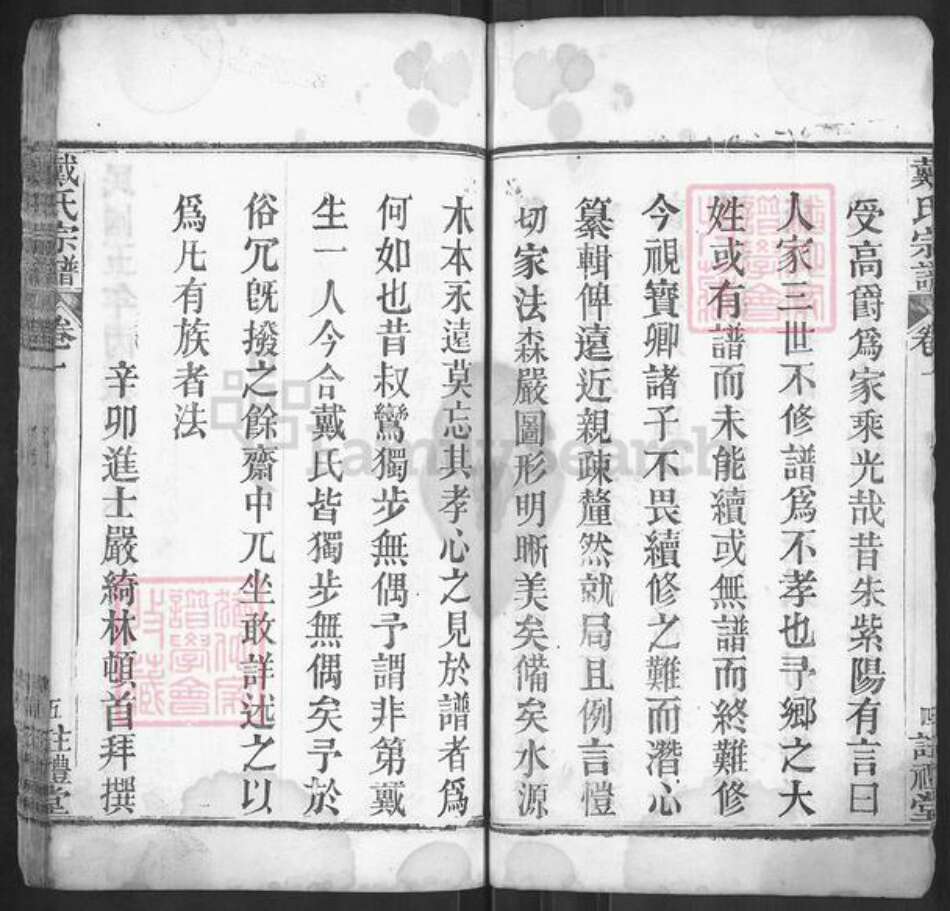 戴氏宗譜
卷一
四
註禮堂
受高爵爲家乘光哉昔朱紫陽有言曰
人家三世不修譜爲不孝也予鄉之大
姓或有譜而未能續或無譜而終難修
今視寳卿諸子不畏續修之難而潛心
纂輯俾遠近親疎釐然就局且例言愷
切家法森嚴圖形明晰美矣備矣水源
木本永遠莫忘其孝心之見於譜者爲
何如也昔叔鸞獨步無偶予謂非第戴
生一人今合戴氏皆獨步無偶矣予於
俗冗旣撥之餘齋中兀坐敢詳述之以
爲凡有族者法
辛卯進士嚴綺林頓首拜撰
戴氏宗譜
卷一
五
註禮堂
FamilySearch